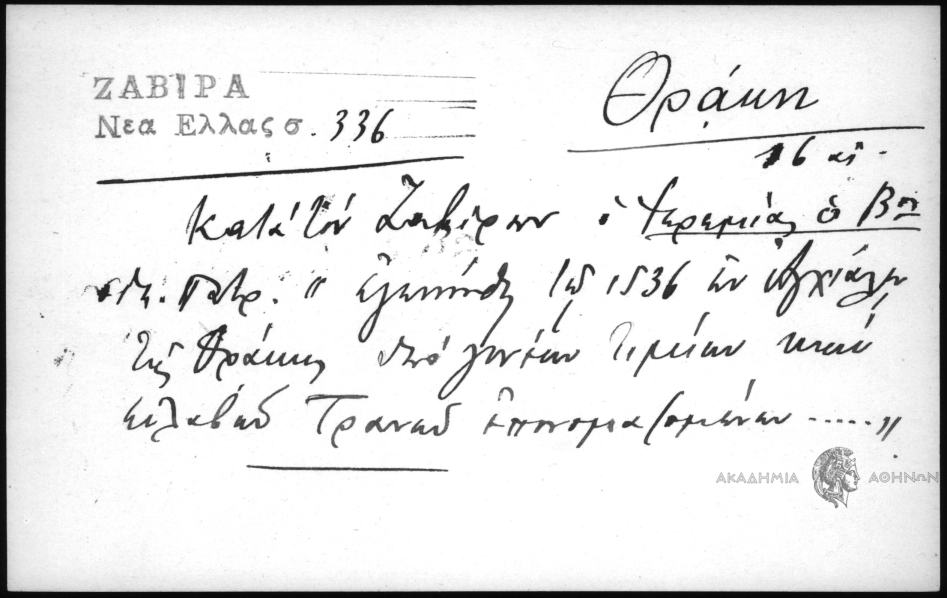 ΖΑΒΙΡΑ
Νεα Ελλας σ. 336
Θράκη
16 αι.
Κατά τόν Ζαβίραν ὁ Ἱερεμίας ὁ Βος
Οἰκ. Πατρ. " ἐγεννήθη τῷ 1536 ἐν Ἀγχιάλῳ
τῆς Θράκης ἀπό γονέων τιμίων καί
εὐλαβῶν Τρανῶν ἐπονομαζομένων ..... "
ΑΚΑΔΗΜΙΑ ΑΘΗΝΩΝ